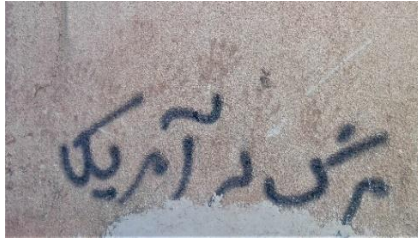 مرگ بر آمریکا